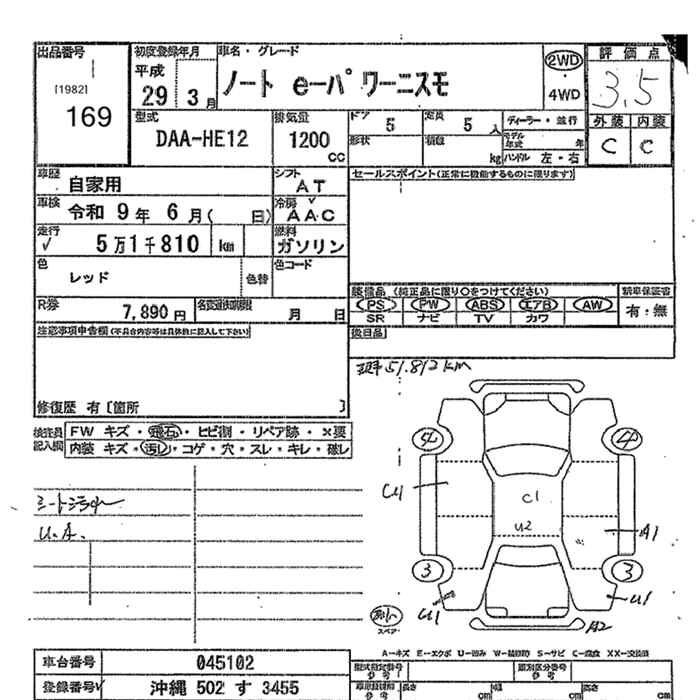 出品番号 初度登録年月 車名・グレード 評価点
[1982] 169 平成 29 3月 ノート e-パワーニスモ 2WD・4WD 3.5
型式 DAA-HE12 排気量 1200 CC ドア 5 定員 5人 ディーラー・並行 外装 内装
形状 積載 kg モデル年式 年 ハンドル 左・右 C C
車歴 自家用 シフト AT セールスポイント(正常に機能するものに限ります)
車検 令和 9年 6月( 日) 冷房 AAC
走行 √ 5万1千810 km 燃料 ガソリン
色 レッド 色替 色コード
装備品 (純正品に限り○をつけてください) 新車保証書
R券 7,890円 名変期限 月 日 PS PW ABS エアB AW 有・無
SR ナビ TV カワ
注意事項申告欄(不具合内容等は具体的に記入して下さい) 後日品
現車 51.812km
修復歴 有〔箇所 〕
検査員記入欄 FW キズ・飛石・ヒビ割・リペア跡・×要
内装 キズ・汚レ・コゲ・穴・スレ・キレ・破レ
4 4
シート汚れ
U.A.
U1 C1 U2 A1
3 3
U1 U1
スペア A2
A−キズ E−エクボ U−凹み W−補修跡 S−サビ C−腐食 XX−交換済
車台番号 045102 型式指定番号 参考 類別区分番号 参考
登録番号√ 沖縄 502 す 3455 参考 長さ cm 幅 cm 高さ cm